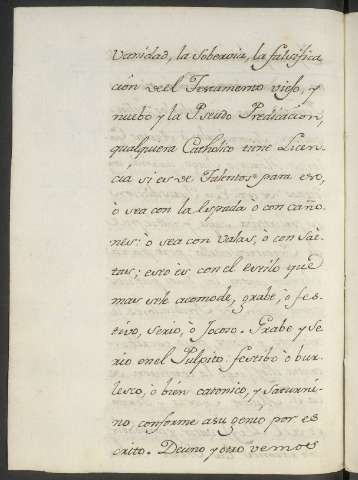 vanidad, la Sobervia, la falsifica
ción de el Testamento viejo, y
nuebo y la Pseudo Predicacion,
qualquera Catholico tiene Licen-
cia si es de Talentos para eso,
ò sea con la espada ò con caño-
nes: ò sea con valas, ò con Sae-
tas; esto es con el estilo que
mas se le acomode, grabe, ò fes-
tivo, serio, ò Jocoso. Grabe y Se-
rio en el Pulpito. festibo ò bur-
lesco, ò bien catonico, y Saturni-
no, conforme a su genio por es
crito. De uno y otro vemos